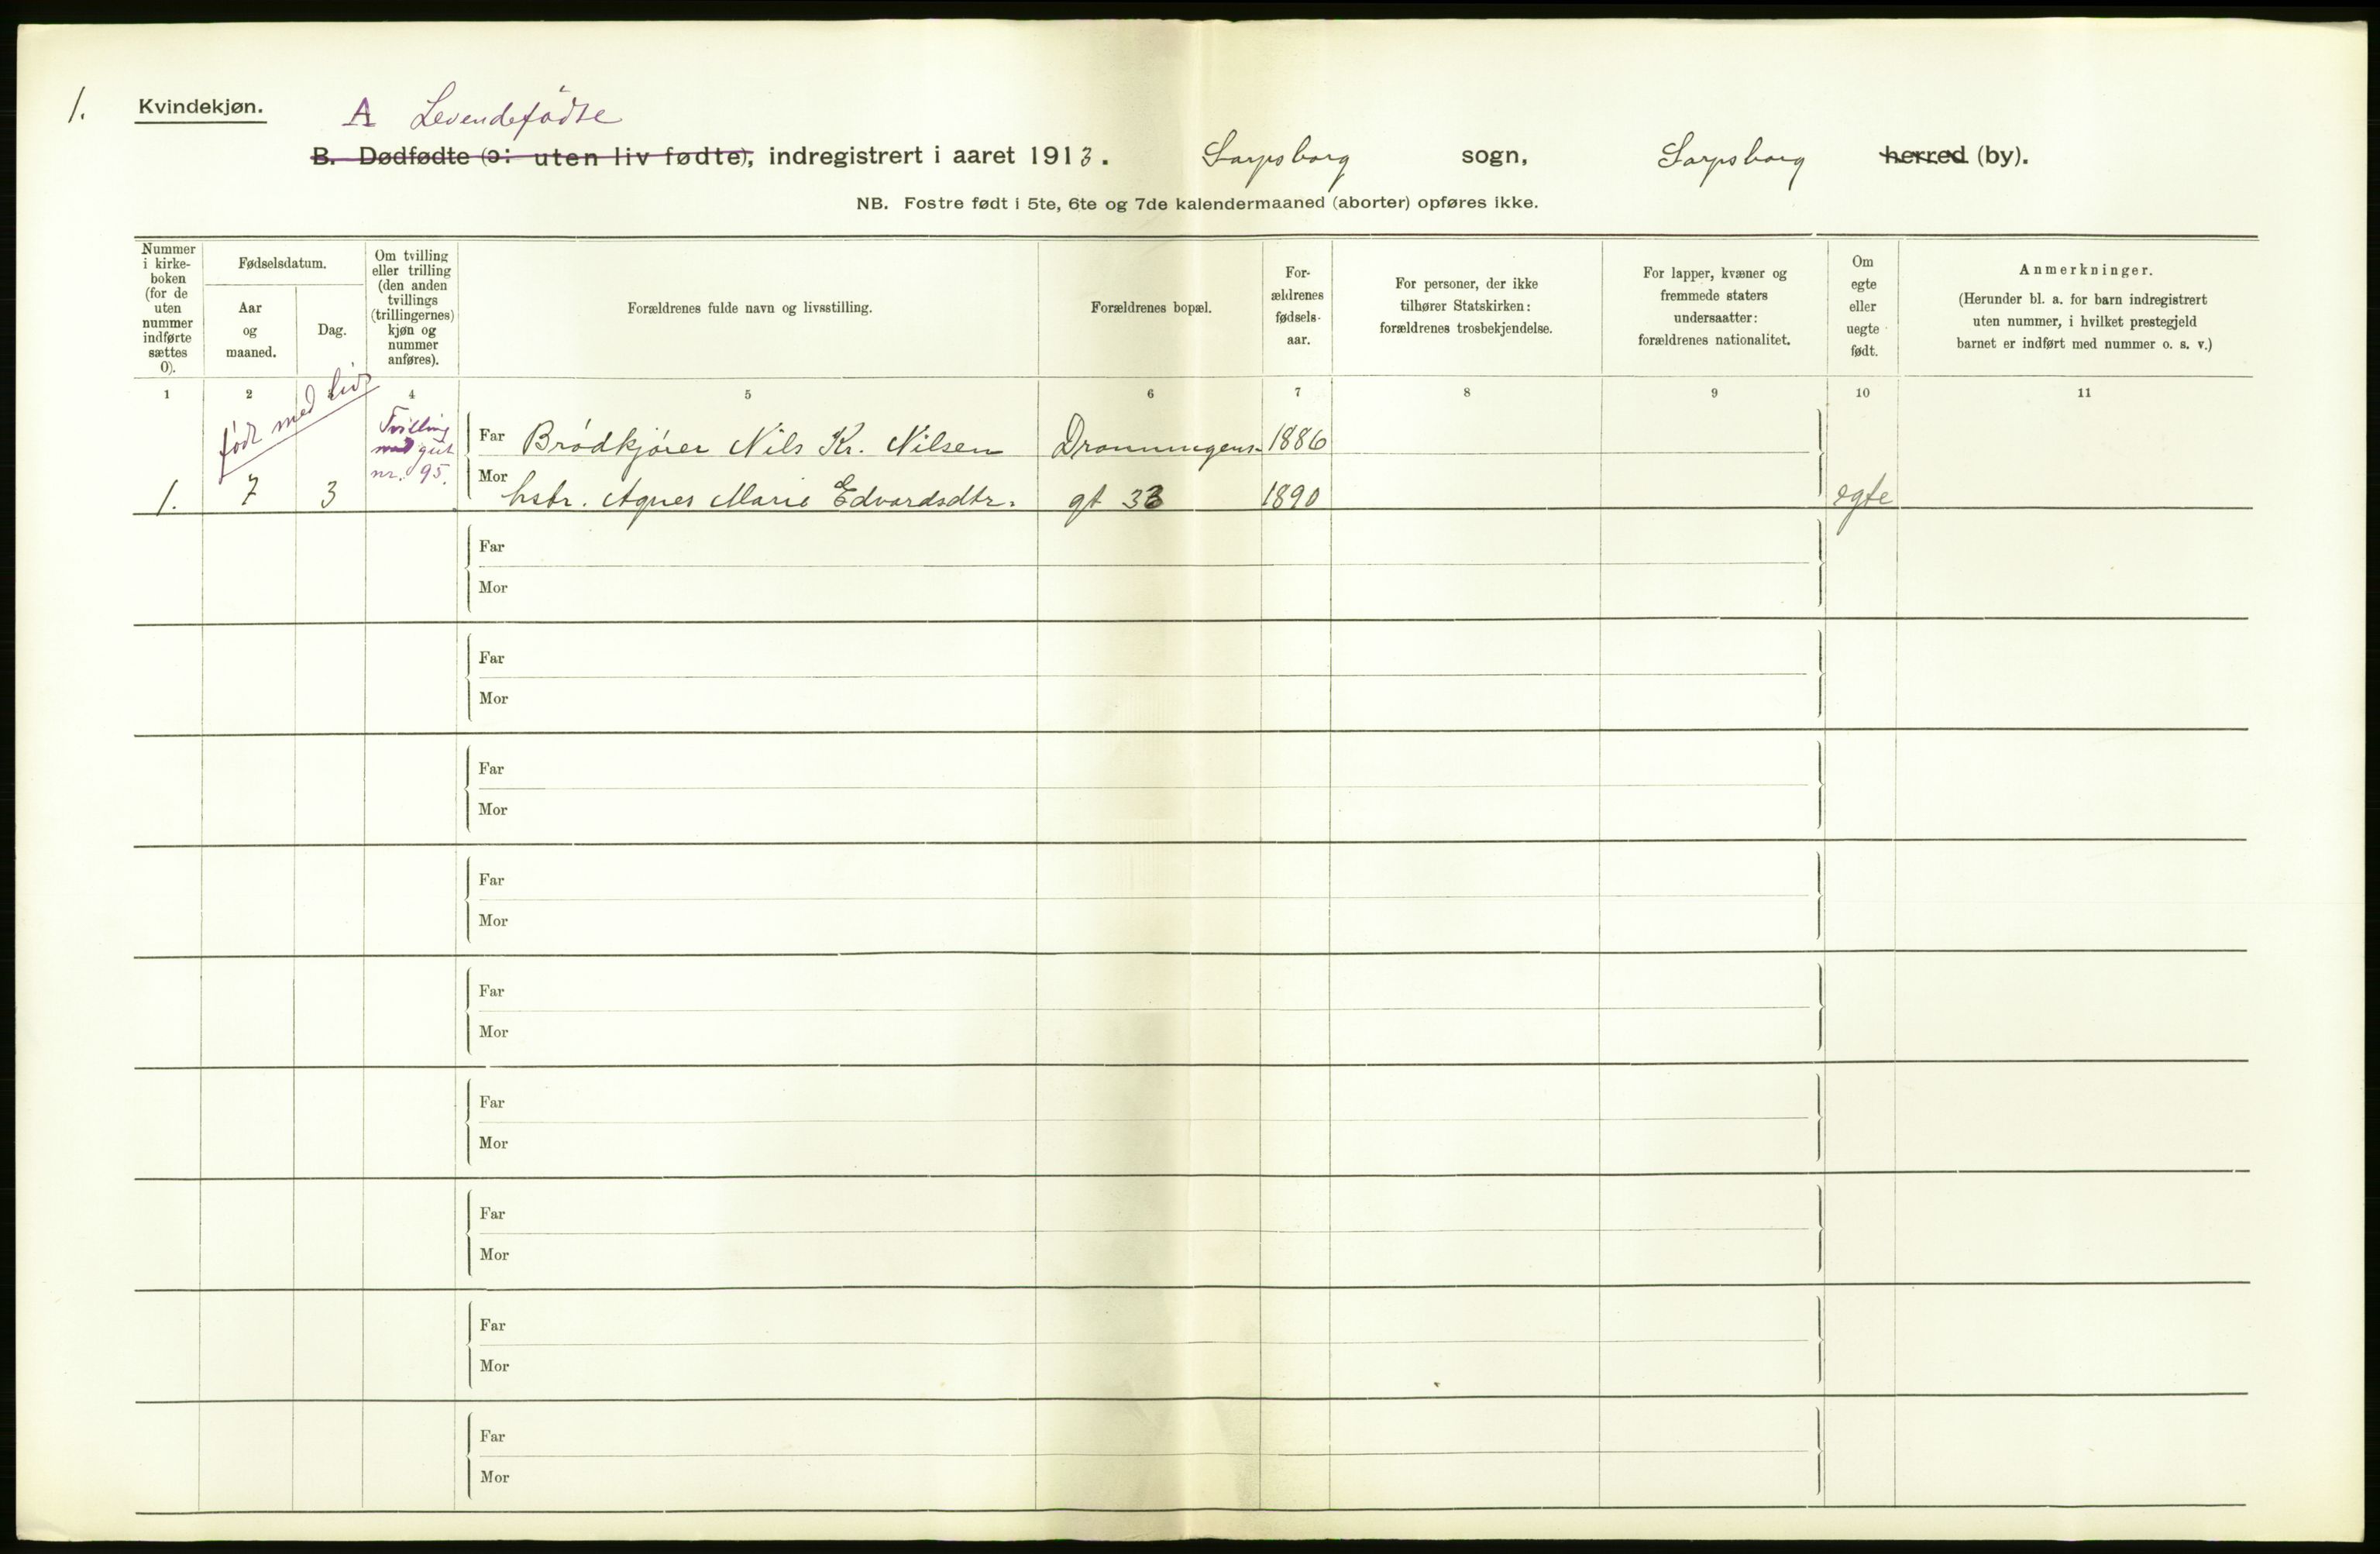 1.
Kvindekjøn.
A Levendefødte
B. Dødfødte (ɔ: uten liv fødte), indregistrert i aaret 1913. Sarpsborg sogn, Sarpsborg herred (by).
NB. Fostre født i 5te, 6te og 7de kalendermaaned (aborter) opføres ikke.
Nummer
i kirke-
boken
(for de
uten
nummer
indførte
sættes
0).
Fødselsdatum.
Aar
og
maaned.
Dag.
Om tvilling
eller trilling
(den anden
tvillings
(trillingernes)
kjøn og
nummer
anføres).
Forældrenes fulde navn og livsstilling.
Forældrenes bopæl.
For-
ældrenes
fødsels-
aar.
For personer, der ikke
tilhører Statskirken:
forældrenes trosbekjendelse.
For lapper, kvæner og
fremmede staters
undersaatter:
forældrenes nationalitet.
Om
egte
eller
uegte
født.
Anmerkninger.
(Herunder bl. a. for barn indregistrert
uten nummer, i hvilket prestegjeld
barnet er indført med nummer o. s. v.)
1 2 4 5 6 7 8 9 10 11
født med liv
Tvilling
med gut
nr. 95.
Far Brødkjører Nils Kr. Nilsen Dronningens- 1886
1. 7 3 Mor hstr. Agnes Marie Edvardsdtr. gt 33 1890 egte
Far
Mor
Far
Mor
Far
Mor
Far
Mor
Far
Mor
Far
Mor
Far
Mor
Far
Mor
Far
Mor